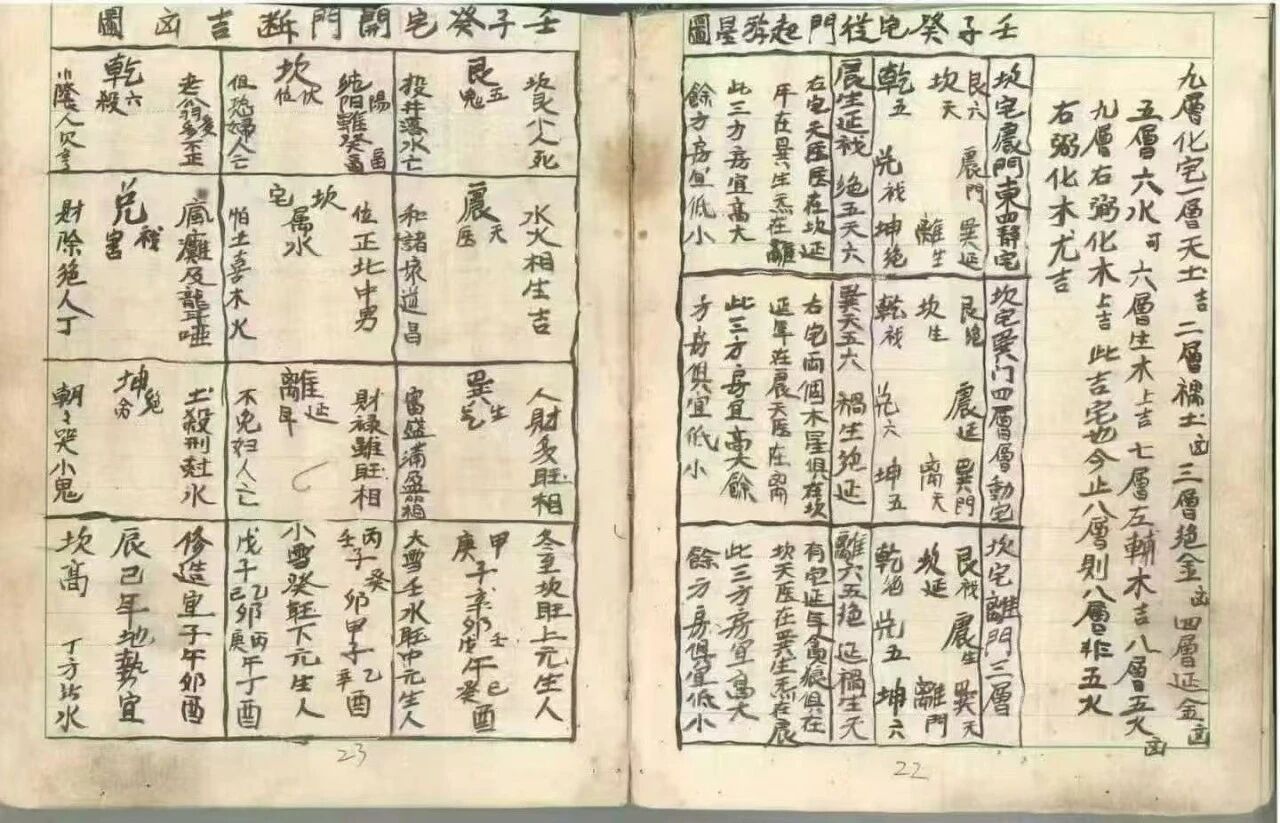 九層化宅一層天土吉 二層禍土凶 三層絕金凶 四層延金凶
五層六水可 六層生木上吉 七層左輔木吉 八層五火凶
九層右弼化木上吉 此吉宅也今止八層則八層非五火
右弼化木尤吉
壬子癸宅從門起遊星圖
坎宅震門東四靜宅
艮六 震門 巽延
坎天 離生
乾五 兌禍 坤絕
震生延禍 絕五天六
右宅天医医在坎延
年在巽生炁在離
此三方房宜高大
餘方房宜低小
坎宅巽门四層層動宅
艮絕 震延 巽門
坎生 离天
乾禍 兌六 坤五
巽天五六 禍生絕延
右宅兩個木星俱在坎
延年在震天医在离
此三方房宜高大餘
方房俱宜低小
坎宅離門三層
艮禍 震生 巽天
坎延 離門
乾絕 兌五 坤六
離六五絕 延禍生天
有宅延年貪狼俱在
坎天医在巽生炁在震
此三方房宜高大
餘方房俱宜低小
22
壬子癸宅開門断吉凶圖
坎艮少人死
艮五鬼
投井落水亡
純陽雖發福
坎伏位
但恐婦人亡
老翁多不正
乾六殺
陰人欠亨
水火相生吉
震天医
和諸壊道昌
位正北中男
坎宅属水
怕土喜木火
瘋癱及聾啞
兌禍害
財除絕人丁
人財多旺相
巽生炁
富盛滿盈箱
財禄雖旺相
離延年
不免妇人亡
土殺刑尅水
坤絕命
朝夕哭小鬼
冬至坎旺上元生人
甲庚子辛卯戊壬午癸己酉
大雪壬水旺中元生人
丙壬子癸卯甲子辛乙酉
小雪癸旺下元生人
戊子己乙卯庚丙午丁酉
修造宜子午卯酉
辰己年地勢宜
坎高 丁方皆水
23